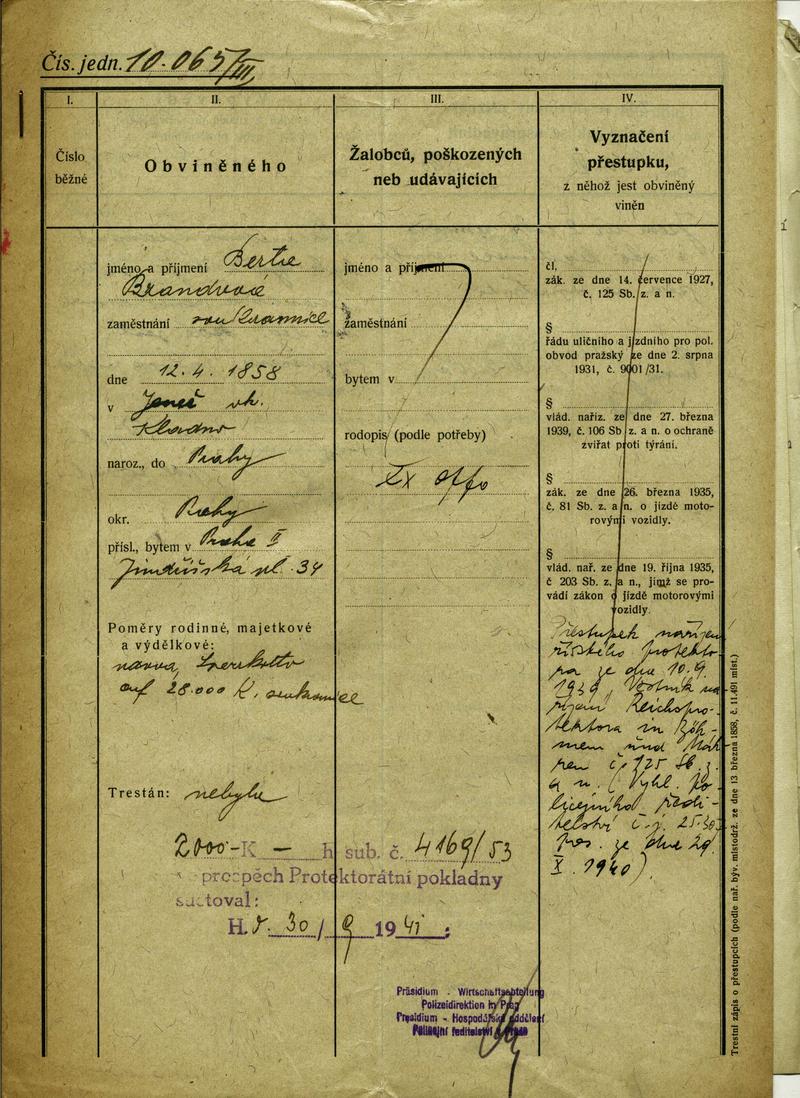 Čís. jedn. 10.065/III
I.
II.
III.
IV.
Číslo
běžné
Obviněného
Žalobců, poškozených
neb udávajících
Vyznačení
přestupku,
z něhož jest obviněný
viněn
jméno a příjmení Berta
Brandová
zaměstnání soukromnice
dne 12.4.1858
v Jeneč ok.
Kladno
naroz., do Prahy
okr. Prahy
přísl., bytem v Praha II
Jindřišská ul. 34
Poměry rodinné, majetkové
a výdělkové:
28.000 K,
Trestán: nebyla
jméno a příjmení
zaměstnání
bytem v
rodopis (podle potřeby)
Ex offo
čl.
zák. ze dne 14. července 1927,
č. 125 Sb. z. a n.
§
řádu uličního a jízdního pro pol.
obvod pražský ze dne 2. srpna
1931, č. 9001/31.
§
vlád. naříz. ze dne 27. března
1939, č. 106 Sb z. a n. o ochraně
zvířat proti týrání.
§
zák. ze dne 26. března 1935,
č. 81 Sb. z. a n. o jízdě moto-
rovými vozidly.
§
vlád. nař. ze dne 19. října 1935,
č 203 Sb. z. a n., jímž se pro-
vádí zákon o jízdě motorovými
vozidly.
Přestupek nařízení
říšského protekto-
ra ze dne 10.9.
1939, Věstník na
řízení Reichspro-
tektora in Böh-
men und Mäh
ren č. 125 Sb. z.
a n. (Vyhl. po
licejního ředi-
telství č.j. 25.303
pres. ze dne 29
X. 1940).
2000-K — h sub. č. 4169/53
prospěch Protektorátní pokladny
súčtoval:
H. ř. 30/9 1941:
Präsidium - Wirtschaftsabteilung
Polizeidirektion in Prag
Presidium - Hospodářské oddělení
Policejní ředitelství v Praze
Trestní zápis o přestupcích (podle nař. býv. místodrž. ze dne 13. března 1858, č. 11.491 míst.)